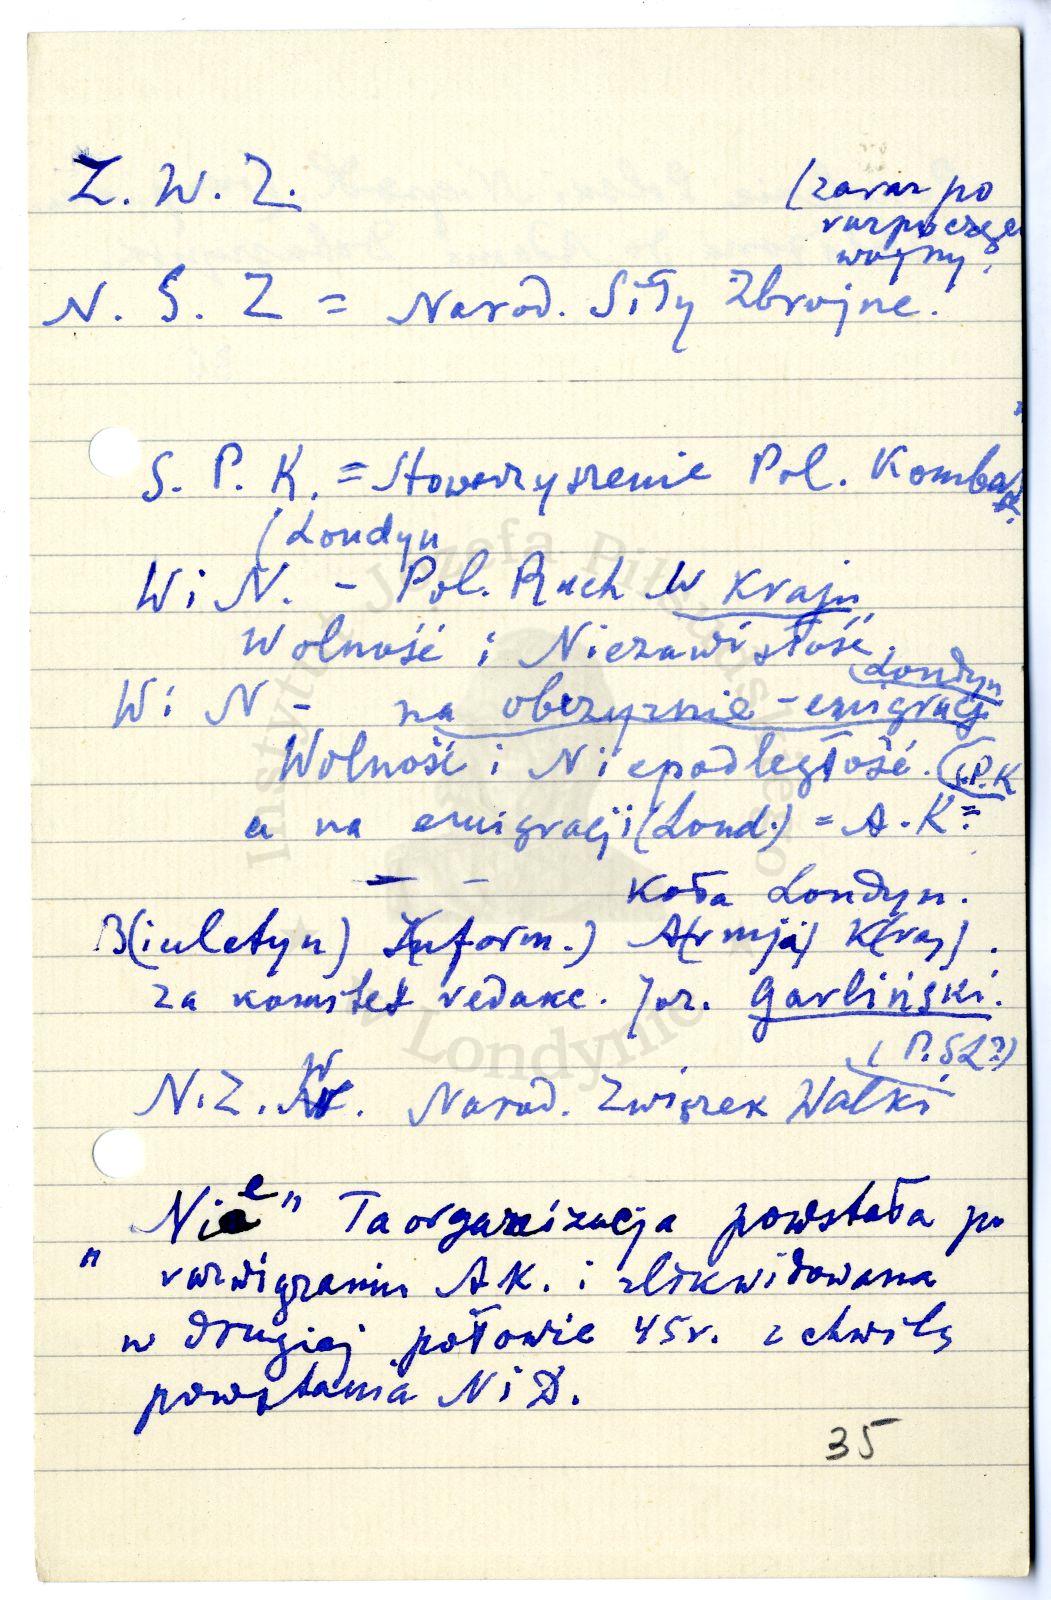 Z. W. Z.
(zaraz po
rozpoczęc
wojny.
N. S. Z = Narod. Siły Zbrojne.
S. P. K. = Stowarzyszenie Pol. Kombat.
(Londyn
W i N. - Pol. Ruch w Kraju
Wolność i Niezawisłość.
Londyn
W i N - na obczyznie - emigracji
Wolność i Niepodległość. S.P.K
a na emigracji (Lond.) = A.K =
— - Koła Londyn.
B(iuletyn) Inform.) A(rmja) K(raj).
za komitet redakc. Joz. Garliński.
(P.SL?)
N.Z.W. Narod. Związek Walki
„Nie" Ta organizacja powstała po
rozwiązaniu AK. i zlikwidowana
w drugiej połowie 45r. z chwilą
powstania N i D.
35
Instytut Józefa Piłsudskiego
★ w Londynie ★